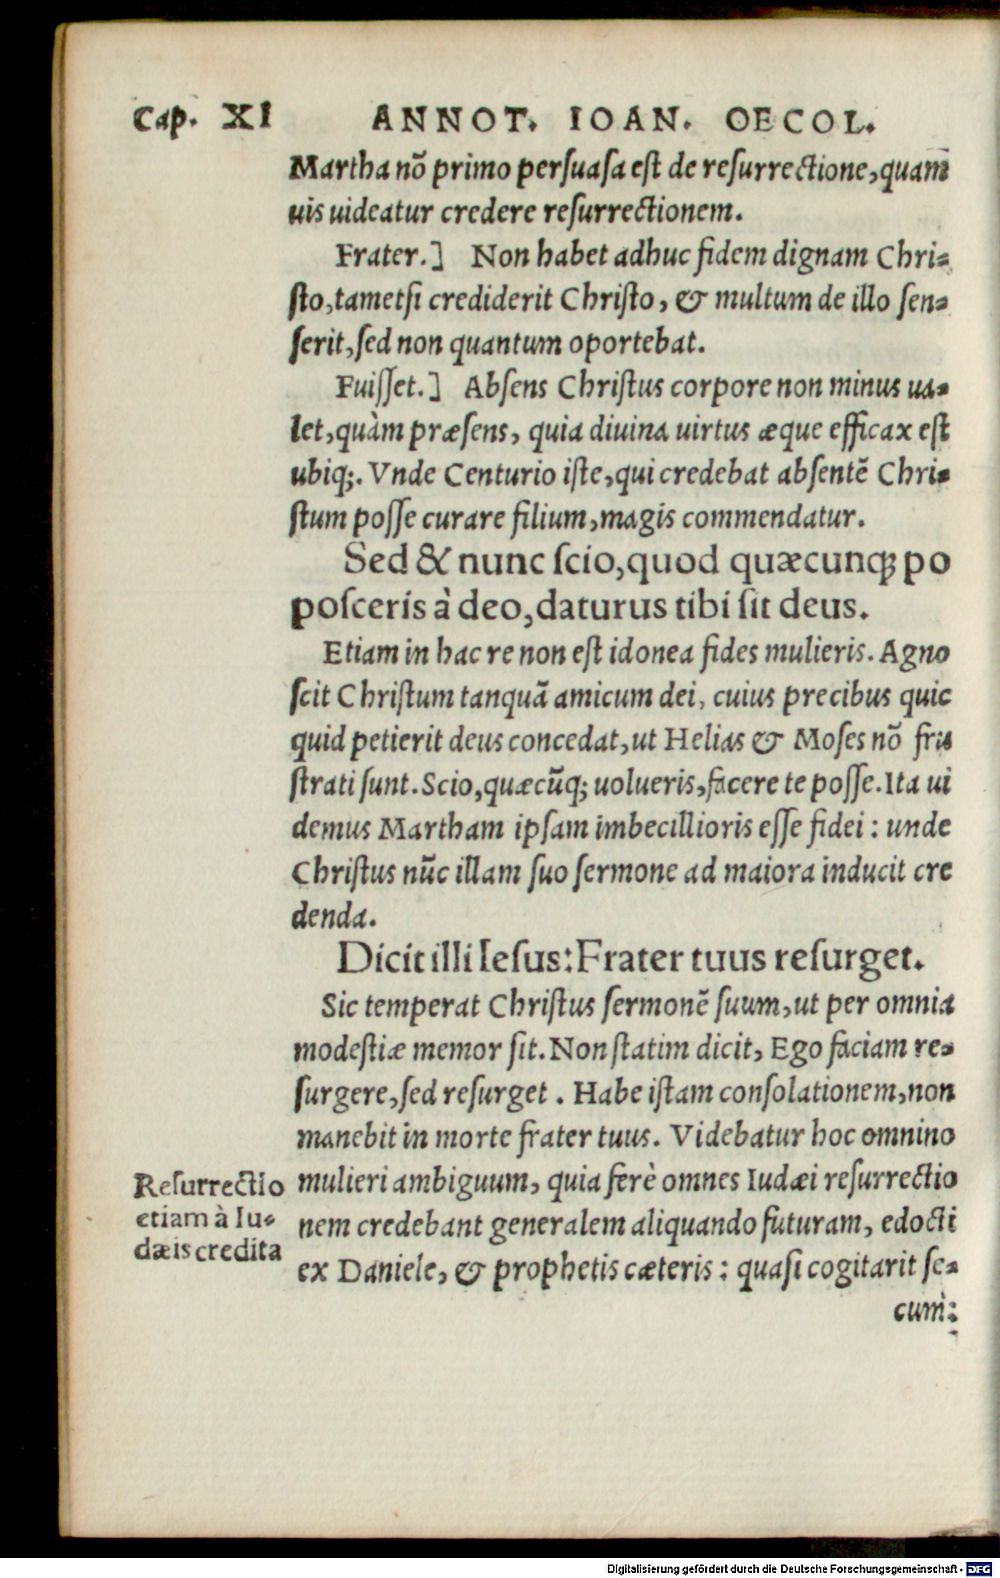 Cap. XI ANNOT. IOAN. OECOL.
Martha nõ primo persuasa est de resurrectione, quam
uis uideatur credere resurrectionem.
Frater.] Non habet adhuc fidem dignam Chri-
sto, tametsi crediderit Christo, & multum de illo sen-
serit, sed non quantum oportebat.
Fuisset.] Absens Christus corpore non minus ua-
let, quàm præsens, quia diuina uirtus æque efficax est
ubiq;. Vnde Centurio iste, qui credebat absentẽ Chri-
stum posse curare filium, magis commendatur.
Sed & nunc scio, quod quæcunq; po
posceris à deo, daturus tibi sit deus.
Etiam in hac re non est idonea fides mulieris. Agno
scit Christum tanquã amicum dei, cuius precibus quic
quid petierit deus concedat, ut Helias & Moses nõ fru
strati sunt. Scio, quæcũq; uolueris, facere te posse. Ita ui
demus Martham ipsam imbecillioris esse fidei: unde
Christus nũc illam suo sermone ad maiora inducit cre
denda.
Dicit illi Iesus: Frater tuus resurget.
Sic temperat Christus sermonẽ suum, ut per omnia
modestiæ memor sit. Non statim dicit, Ego faciam re-
surgere, sed resurget. Habe istam consolationem, non
manebit in morte frater tuus. Videbatur hoc omnino
mulieri ambiguum, quia ferè omnes Iudæi resurrectio
nem credebant generalem aliquando futuram, edocti
ex Daniele, & prophetis cæteris: quasi cogitarit se-
cum:
Resurrectio
etiam à Iu-
dæis credita
Digitalisierung gefördert durch die Deutsche Forschungsgemeinschaft - DFG